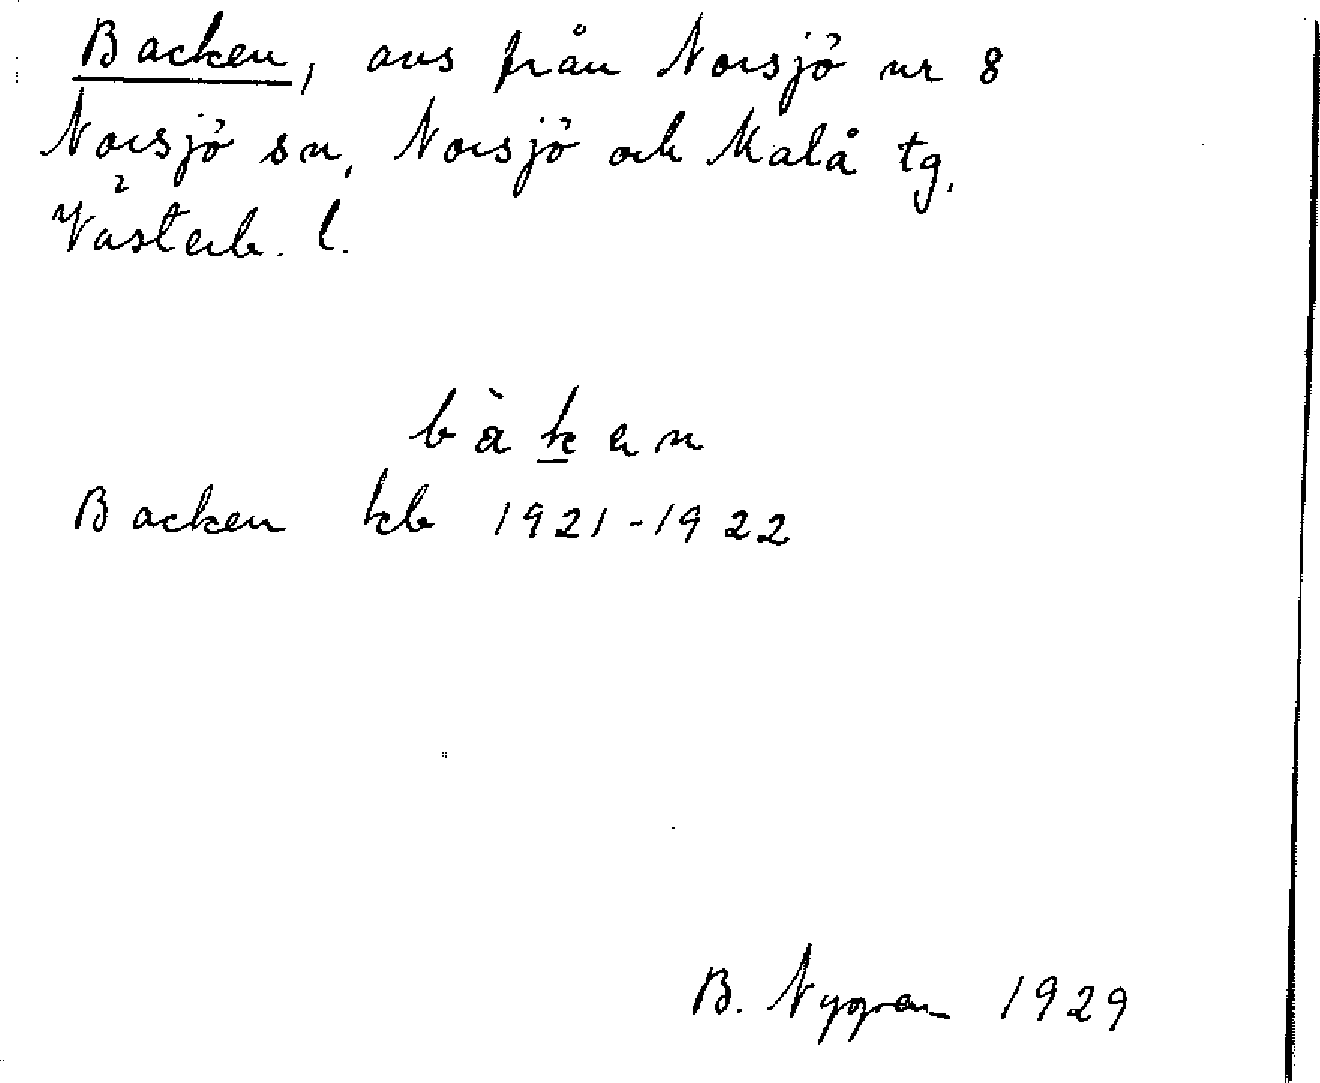 Backen, avs från Norsjö nr 8
Norsjö sn, Norsjö och Malå tg,
Västerb. l.
bàk̲en
Backen kb 1921-1922
B. Nygren 1929